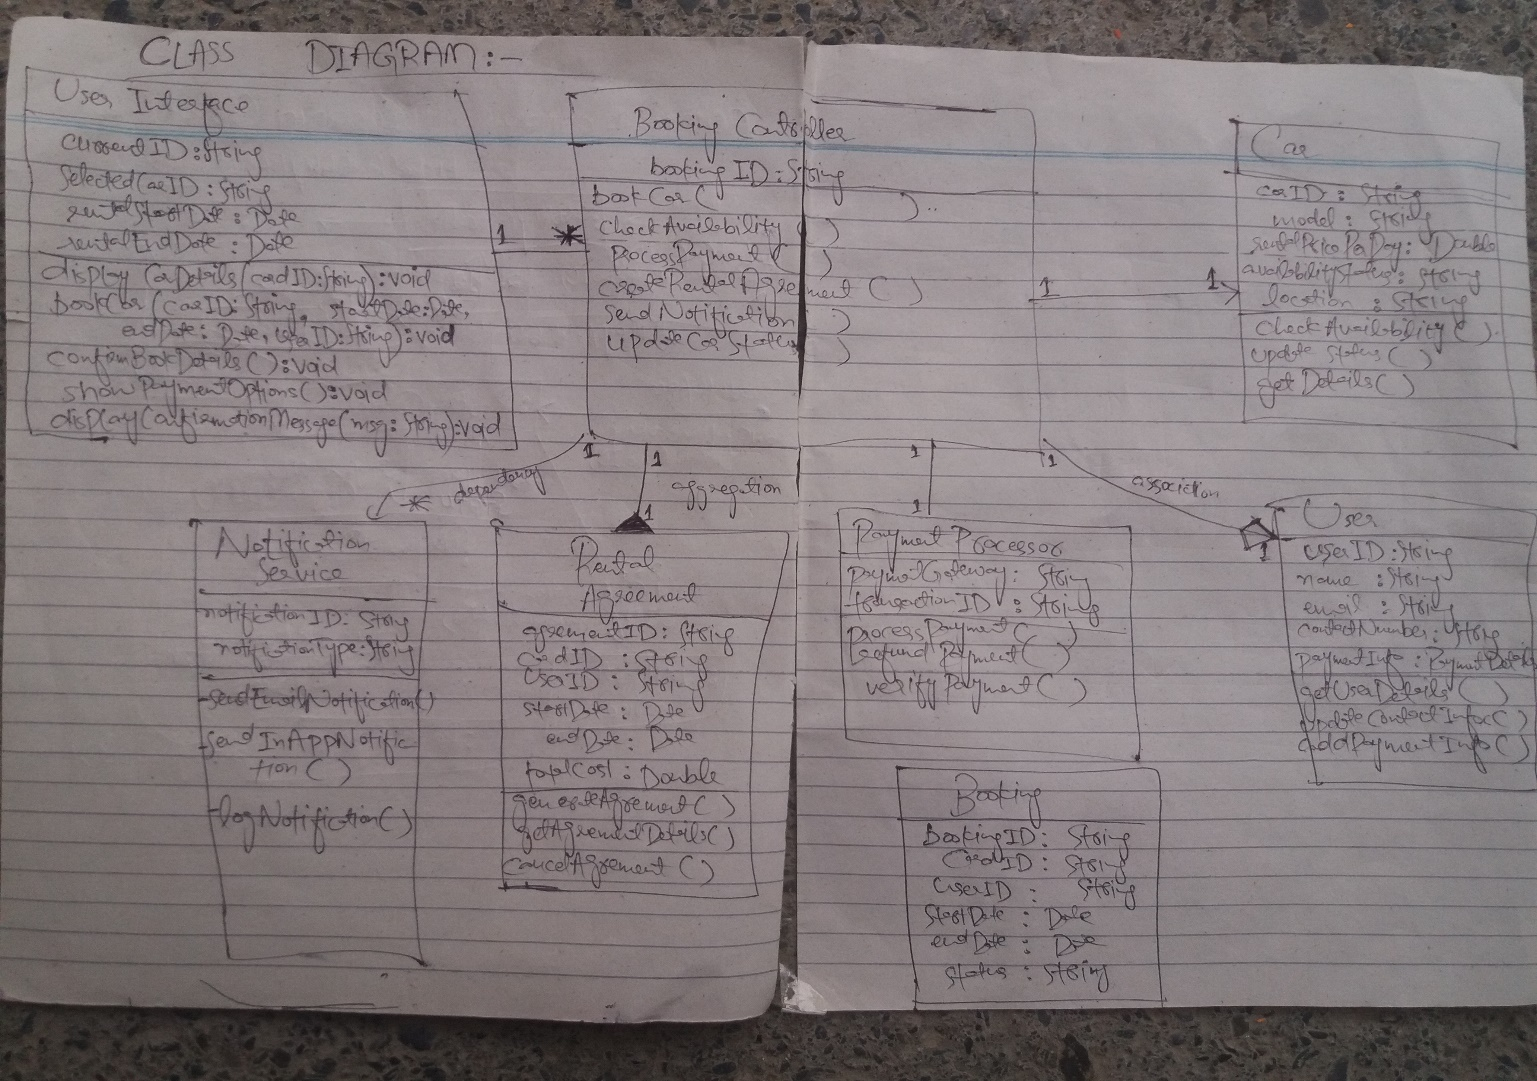 CLASS DIAGRAM:-
User Interface
currentID:String
SelectedCarID : String
rentalStartDate : Date
rentalEndDate : Date
display CarDetails(cardID:String):void
bookCar (carID: String, startDate:Date,
endDate: Date, userID:String):void
confirmBookDetails():void
showPaymentOptions():void
displayConfirmationMessage(msg:String):void
1 *
Booking Controller
booking ID: String
book Car ( )..
checkAvailability ( )
processPayment ( )
createRentalAgreement ( )
sendNotification ( )
updateCarStatus )
1 1
Car
carID : String
model : String
rentalPricePerDay: Double
availibilityStatus: String
location : String
checkAvailability()
update status()
getDetails()
1
* dependency
1
aggregation
1
1
1
1
association
1
Notification
Service
notificationID: String
notificationType:String
-sendEmailNotification()
-send InAppNotific
tion()
-logNotification()
Rental
Agreement
agreementID: String
cardID : String
UserID : String
startDate : Date
endDate : Date
totalCost : Double
generateAgreement()
getAgreementDetails()
cancelAgrement ()
Payment Processor
paymetGateway: String
transactionID : String
processPayment( )
Refund Payment()
verifyPayment()
User
userID:String
name :String
email : String
contactNumber: String
paymentInfo : PaymentDetails
getUserDetails ( )
updateContactInfo()
addPaymentInfo()
Booking
BookingID: String
CardID : String
UserID : String
startDate : Date
endDate : Date
status : String